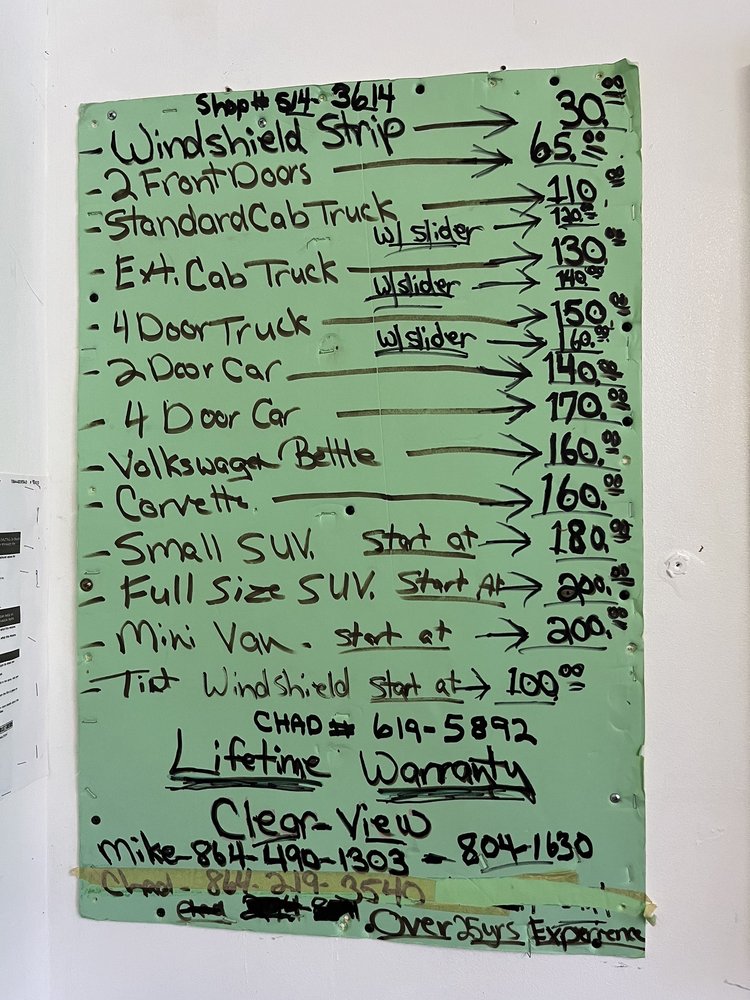 Shop# 514-3614
- Windshield Strip → 30.00
- 2 Front Doors → 65.00
- Standard Cab Truck → 110.00
w/slider → 120.00
- Ext. Cab Truck → 130.00
w/slider → 140.00
- 4 Door Truck → 150.00
w/slider → 160.00
- 2 Door Car → 140.00
- 4 Door Car → 170.00
- Volkswagen Bettle → 160.00
- Corvette. → 160.00
- Small SUV. Start at → 180.00
- Full Size SUV. Start At → 200.00
- Mini Van. start at → 200.00
- Tint Windshield start at → 100.00
CHAD # 619-5892
Lifetime Warranty
Clear-View
Mike-864-490-1303 - 804-1630
Chad - 864-219-3540
Chad
Over 25yrs Experience